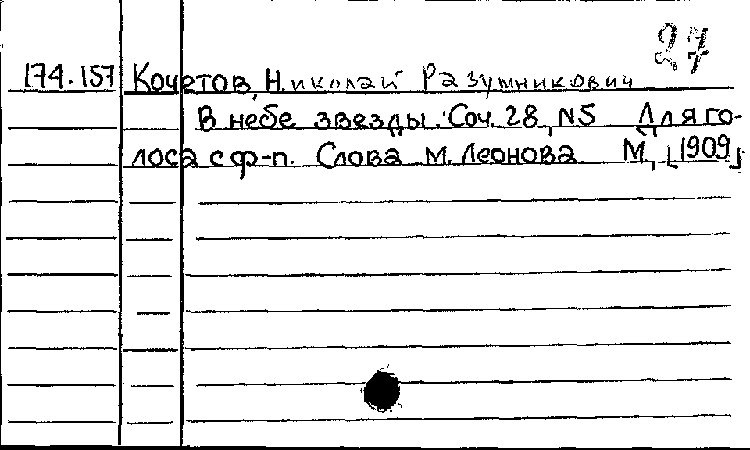 27
174.157 Кочетов, Николай Разумникович
В небе звезды. Соч. 28, N5 Для го-
лоса с ф-п. Слова М. Леонова М, [1909]